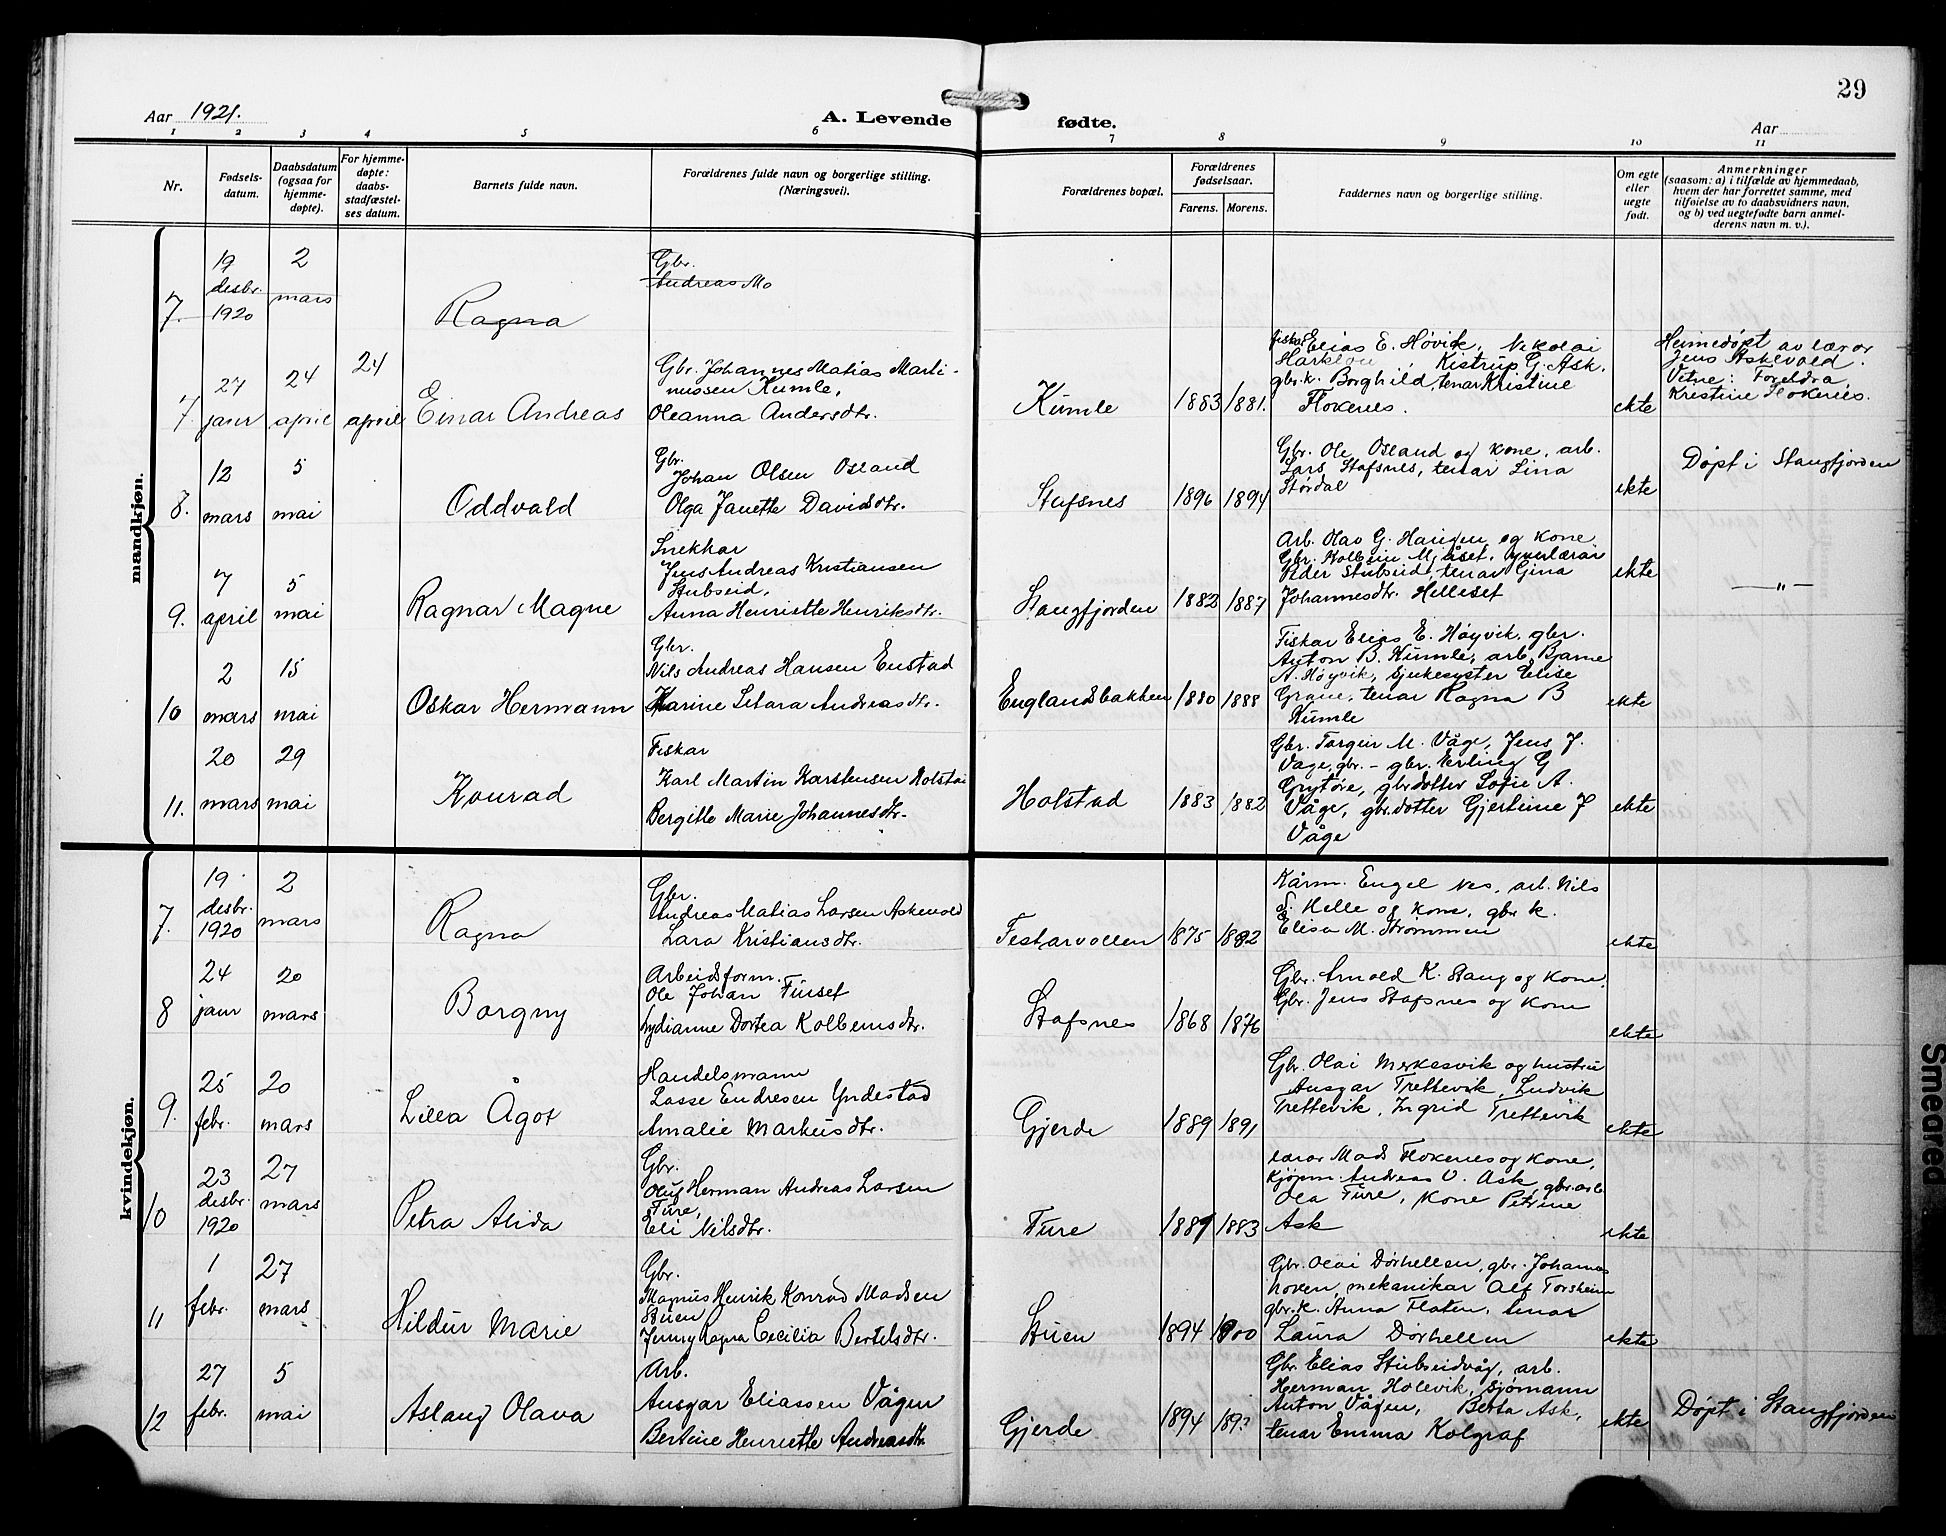 29
Aar 1921.
A. Levende fødte.
Aar
1 2 3 4 5 6 7 8 9 10 11
Nr.
Fødsels-
datum.
Daabsdatum
(ogsaa for
hjemme-
døpte).
For hjemme-
døpte:
daabs-
stadfæstel-
ses datum.
Barnets fulde navn.
Forældrenes fulde navn og borgerlige stilling.
(Næringsvei).
Forældrenes bopæl.
Forældrenes
fødselsaar.
Farens. Morens.
Faddernes navn og borgerlige stilling.
Om egte
eller
uegte
født.
Anmerkninger
(saasom: a) i tilfælde av hjemmedaab,
hvem der har forrettet samme, med
tilføielse av to daabsvidners navn,
og b) ved uegtefødte barn anmel-
derens navn m. v.).
mandkjøn.
7.
19
desbr.
1920
2
mars
Ragna
Gbr.
Andreas Mo
7.
27
janr
24
april
24
april
Einar Andreas
Gbr. Johannes Matias Marti-
nussen Kumle,
Oleanna Andersdtr.
Kumle
1883
1881.
fiskar Elias E. Høvik, Nikolai
Kistrup G. Ask,
gbr.k. Borghild, tenar Kristine
Flokenes.
ekte
Heimedøpt av lærar
Jens Askevold.
Vitne: Foreldra,
Kristine Flokenes.
8.
12
mars
5
mai
Oddvald
Gbr.
Johan Olsen Osland
Olga Janette Davidsdtr.
Stafsnes
1896
1894
Gbr. Ole Osland og kone, arb.
Lars Stafsnes, tenar Lina
Størdal
ekte
Døpt i Stangfjorden
9.
7
april
5
mai
Ragnar Magne
Snekkar
Jens Andreas Kristiansen
Stubseid,
Anna Henriette Henriksdtr.
Stangfjorden
1882
1887
Arb. Olav G. Haugen og kone
Gbr. Kolbein Mjåset, yverlærar
Peder Stubseid, tenar Gina
Johannesdtr. Helleset
ekte
— " —
10
2
mars
15
mai
Oskar Hermann
Gbr.
Nils Andreas Hansen Enstad
Karine Silara Andreasdtr.
Englandsbakken
1880
1888
Fiskar Elias E. Høyvik, gbr.
Anton B. Kumle, arb. Bjarne
A. Høyvik, sjukesyster Elise
Grane, tenar Ragna B
Kumle
ekte
11.
20
mars
29
mai
Konrad
Fiskar
Karl Martin Karstensen Holstad
Bergitte Marie Johannesdtr.
Holstad
1883
1882
Gbr. Torgeir M. Våge, Jens J.
Våge, gbr. – gbr. Erling G
Grytøre, gbr.dotter Sofie A.
Våge, gbr.dotter Gjertine J
Våge
ekte
kvindekjøn.
7.
19
desbr.
1920
2
mars
Ragna
Gbr.
Andreas Matias Larsen Askevold
Lara Kristiansdtr.
Festarvollen
1875
1882
Kårm. Engel Nes, arb. Nils
S. Helle og kone, gbr k.
Elisa M. Strømmen
ekte
8
24
janr
20
mars
Borgny
Arbeidsform.
Ole Johan Furset
Lydianne Dortea Kolbeinsdtr.
Stafsnes
1868
1876
Gbr. Arnold K. Stang og kone,
Gbr. Jens Stafsnes og kone
ekte
9.
25
febr.
20
mars
Lilla Ågot
Handelsmann
Lasse Endresen Yndestad
Amalie Markusdtr.
Gjerde
1889
1891
Gbr. Olai Merkesvik og hustru
Ansgar Trettevik, Ludvik
Trettevik, Ingrid Trettevik
ekte
10
23
desbr.
1920
27
mars
Petra Alida
Gbr.
Oluf Herman Andreas Larsen
Fure,
Eli Nilsdtr.
Fure
1889
1883
lærar Mads Flokenes og kone,
kjøpm. Andreas O. Ask, gbr.arb.
Ola Fure, kone Petrine
Ask
ekte
11
1
febr.
27
mars
Hildur Marie
Gbr.
Magnus Henrik Konrad Madsen
Stuen
Jenny Ragna Cecilia Bertelsdtr.
Stuen
1894
1900
Gbr. Olai Dørhellen, gbr. Johannes
Noven, mekanikar Alf Torsheim
gbr.k. Anna Flaten, tenar
Laura Dørhellen
ekte
12
27
febr.
5
mai
Aslaug Olava
Arb.
Ansgar Eliassen Vågen
Bertine Henriette Andreasdtr.
Gjerde
1894
189?
Gbr. Elias Stubseidvåg, arb.
Herman Holevik, sjømann
Anton Vågen, Berta Ask,
tenar Emma Kolgraf
ekte
Døpt i Stangfjorden
Smeared